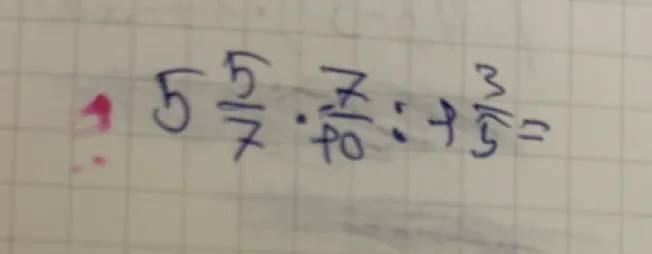 5 5/7 · 7/10 : 1 3/5 =